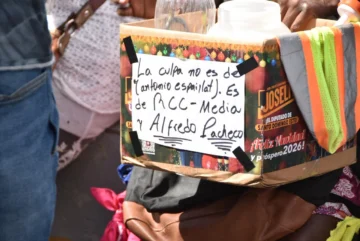 La culpa no es de
(antonio espaillat). Es
de MCC-Media
y Alfredo Pacheco
JOSELI
¡Feliz Navidad
Y próspero 2026!